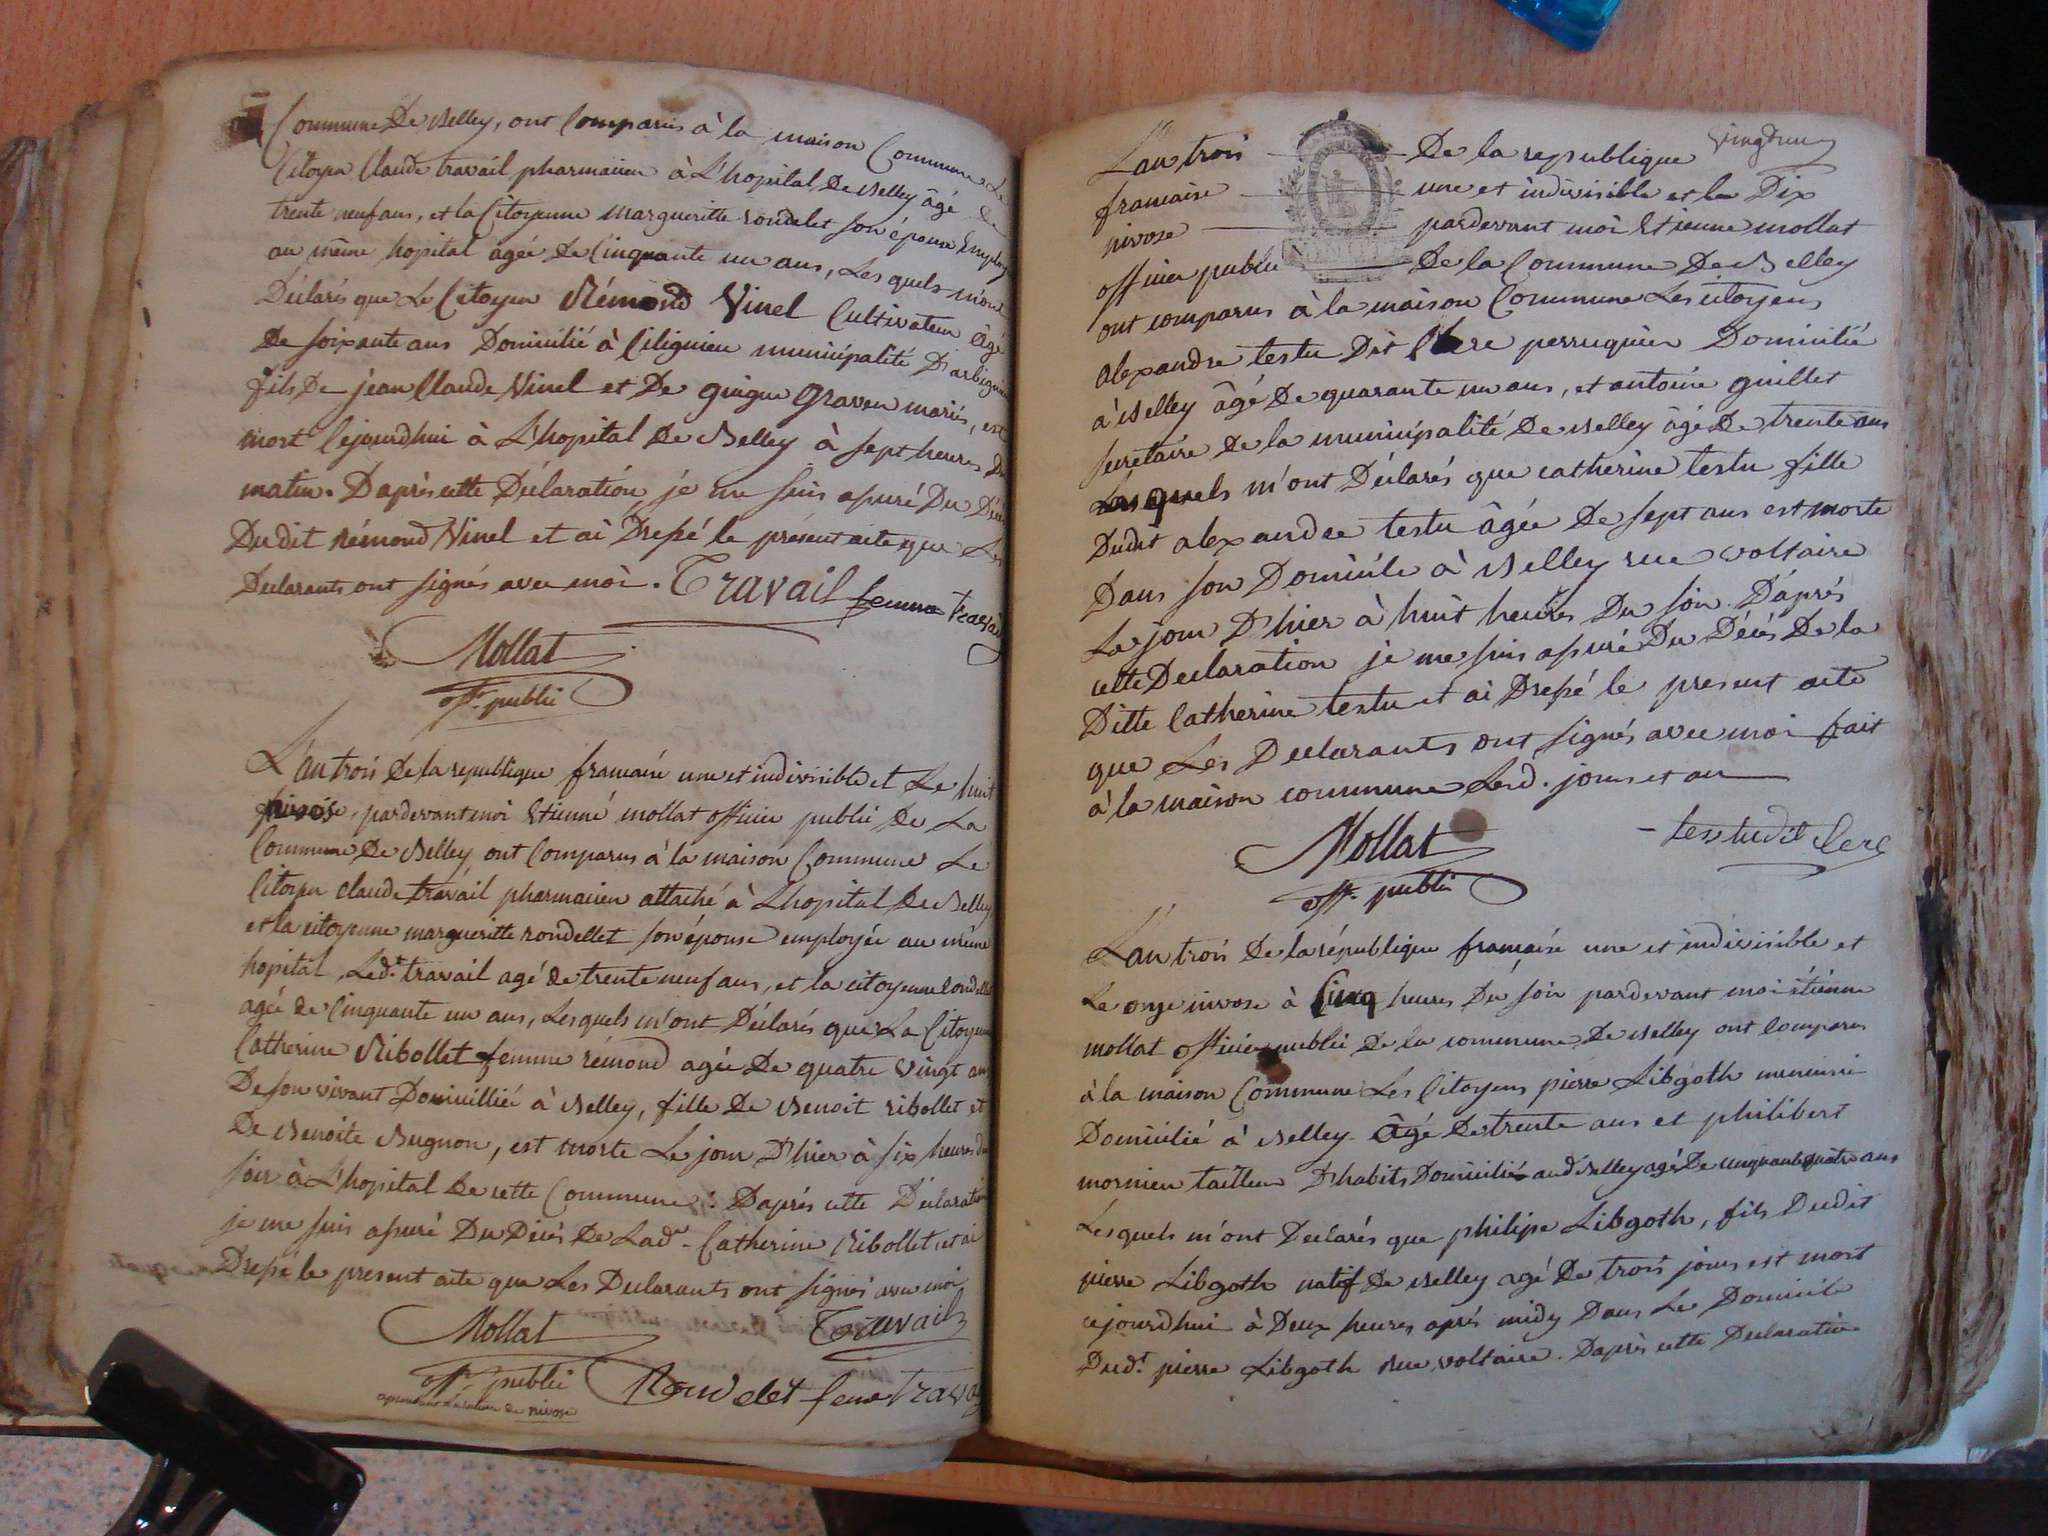 Commune De Belley, ont Comparus à la maison Commune Le
Citoyen Claude travail pharmacien à L'hopital De Belley âgé de
trente neuf ans, et la Citoyenne margueritte rondelet son épouse Employée
au même hopital agée De Cinquante un ans, Les quels m'ont
Déclarés que Le Citoyen Rémond Vinel Cultivateur âgé
De soixante ans Domicilié à Cilignieu municipalité D'arbignieu
fils De jean Claude Vinel et De guigue graven mariés, est
mort Cejourdhui à L'hopital De Belley à sept heures Du
matin. Daprès cette Déclaration je me suis assuré Du Décès
Dudit rémond Vinel et ai Dressé le présent acte que Les
Declarants ont signés avec moi. Travail femme Travail
Mollat
off. public
L'an trois De la republique francaise une et indivisible et Le huit
nivose, pardevant moi Etienne mollat officier public De La
Commune De Belley ont Comparus à la maison Commune Le
Citoyen claude travail pharmacien attaché à L'hopital De Belley
et la citoyenne margueritte rondellet son épouse employée au même
hopital, Ledt. travail agé de trente neuf ans, et la citoyenne rondellet
agée de Cinquante un ans, Lesquels m'ont Déclarés que La Citoyenne
Catherine Ribollet femme rémond agée De quatre vingt ans
De son vivant Domicilliée à Belley, fille De Benoit ribollet et
De Benoite Bugnon, est morte Le jour D'hier à six heures du
soir à L'hopital De cette Commune : Daprés cette Déclaration
je me suis assuré Du Décès De Lade. Catherine Ribollet, et ai
Dressé le present acte que Les Declarants ont signés avec moi
Mollat Travail
off. public Rondelet feme Travail
nivose
vingt un
L'an trois De la republique
francaise une et indivisible et le Dix
nivose pardevant moi Etienne mollat
officier public De la Commune De Belley
ont comparus à la maison Commune Les citoyens
alexandre testu Dit Clere perruquier Domicilié
à Belley âgé De quarante un ans, et antoine guillet
secretaire De la municipalité De Belley âgé De trente ans
Lesquels m'ont Déclarés que catherine testu fille
Dudit alexandre testu âgée De sept ans est morte
Dans son Domicile à Belley rue voltaire
Le jour D'hier à huit heures Du soir. D'aprés
cette Declaration je me suis assuré Du Décés De la
Ditte Catherine testu et ai Dressé le present acte
que Les Declarants ont signés avec moi fait
à la maison commune Lesd. jour et an
Mollat testu dit Clere
off. public
L'an trois De la république francaise une et indivisible et
Le onze nivose à Cinq heures Du soir pardevant moi étienne
mollat officier public De la commune De Belley ont Comparus
à la maison Commune Les Citoyens pierre Libgoth menuisié
Domicilié à Belley âgé De trente ans et philibert
mornieu tailleur D'habits Domicilié aud Belley agé De cinquante quatre ans
Lesquels m'ont Declarés que philipe Libgoth, fils Dudit
pierre Libgoth natif De Belley agé De trois jours est mort
cejourdhui à Deux heures aprés midy Dans Le Domicile
Dudt. pierre Libgoth Rue voltaire. Daprès cette Declaration